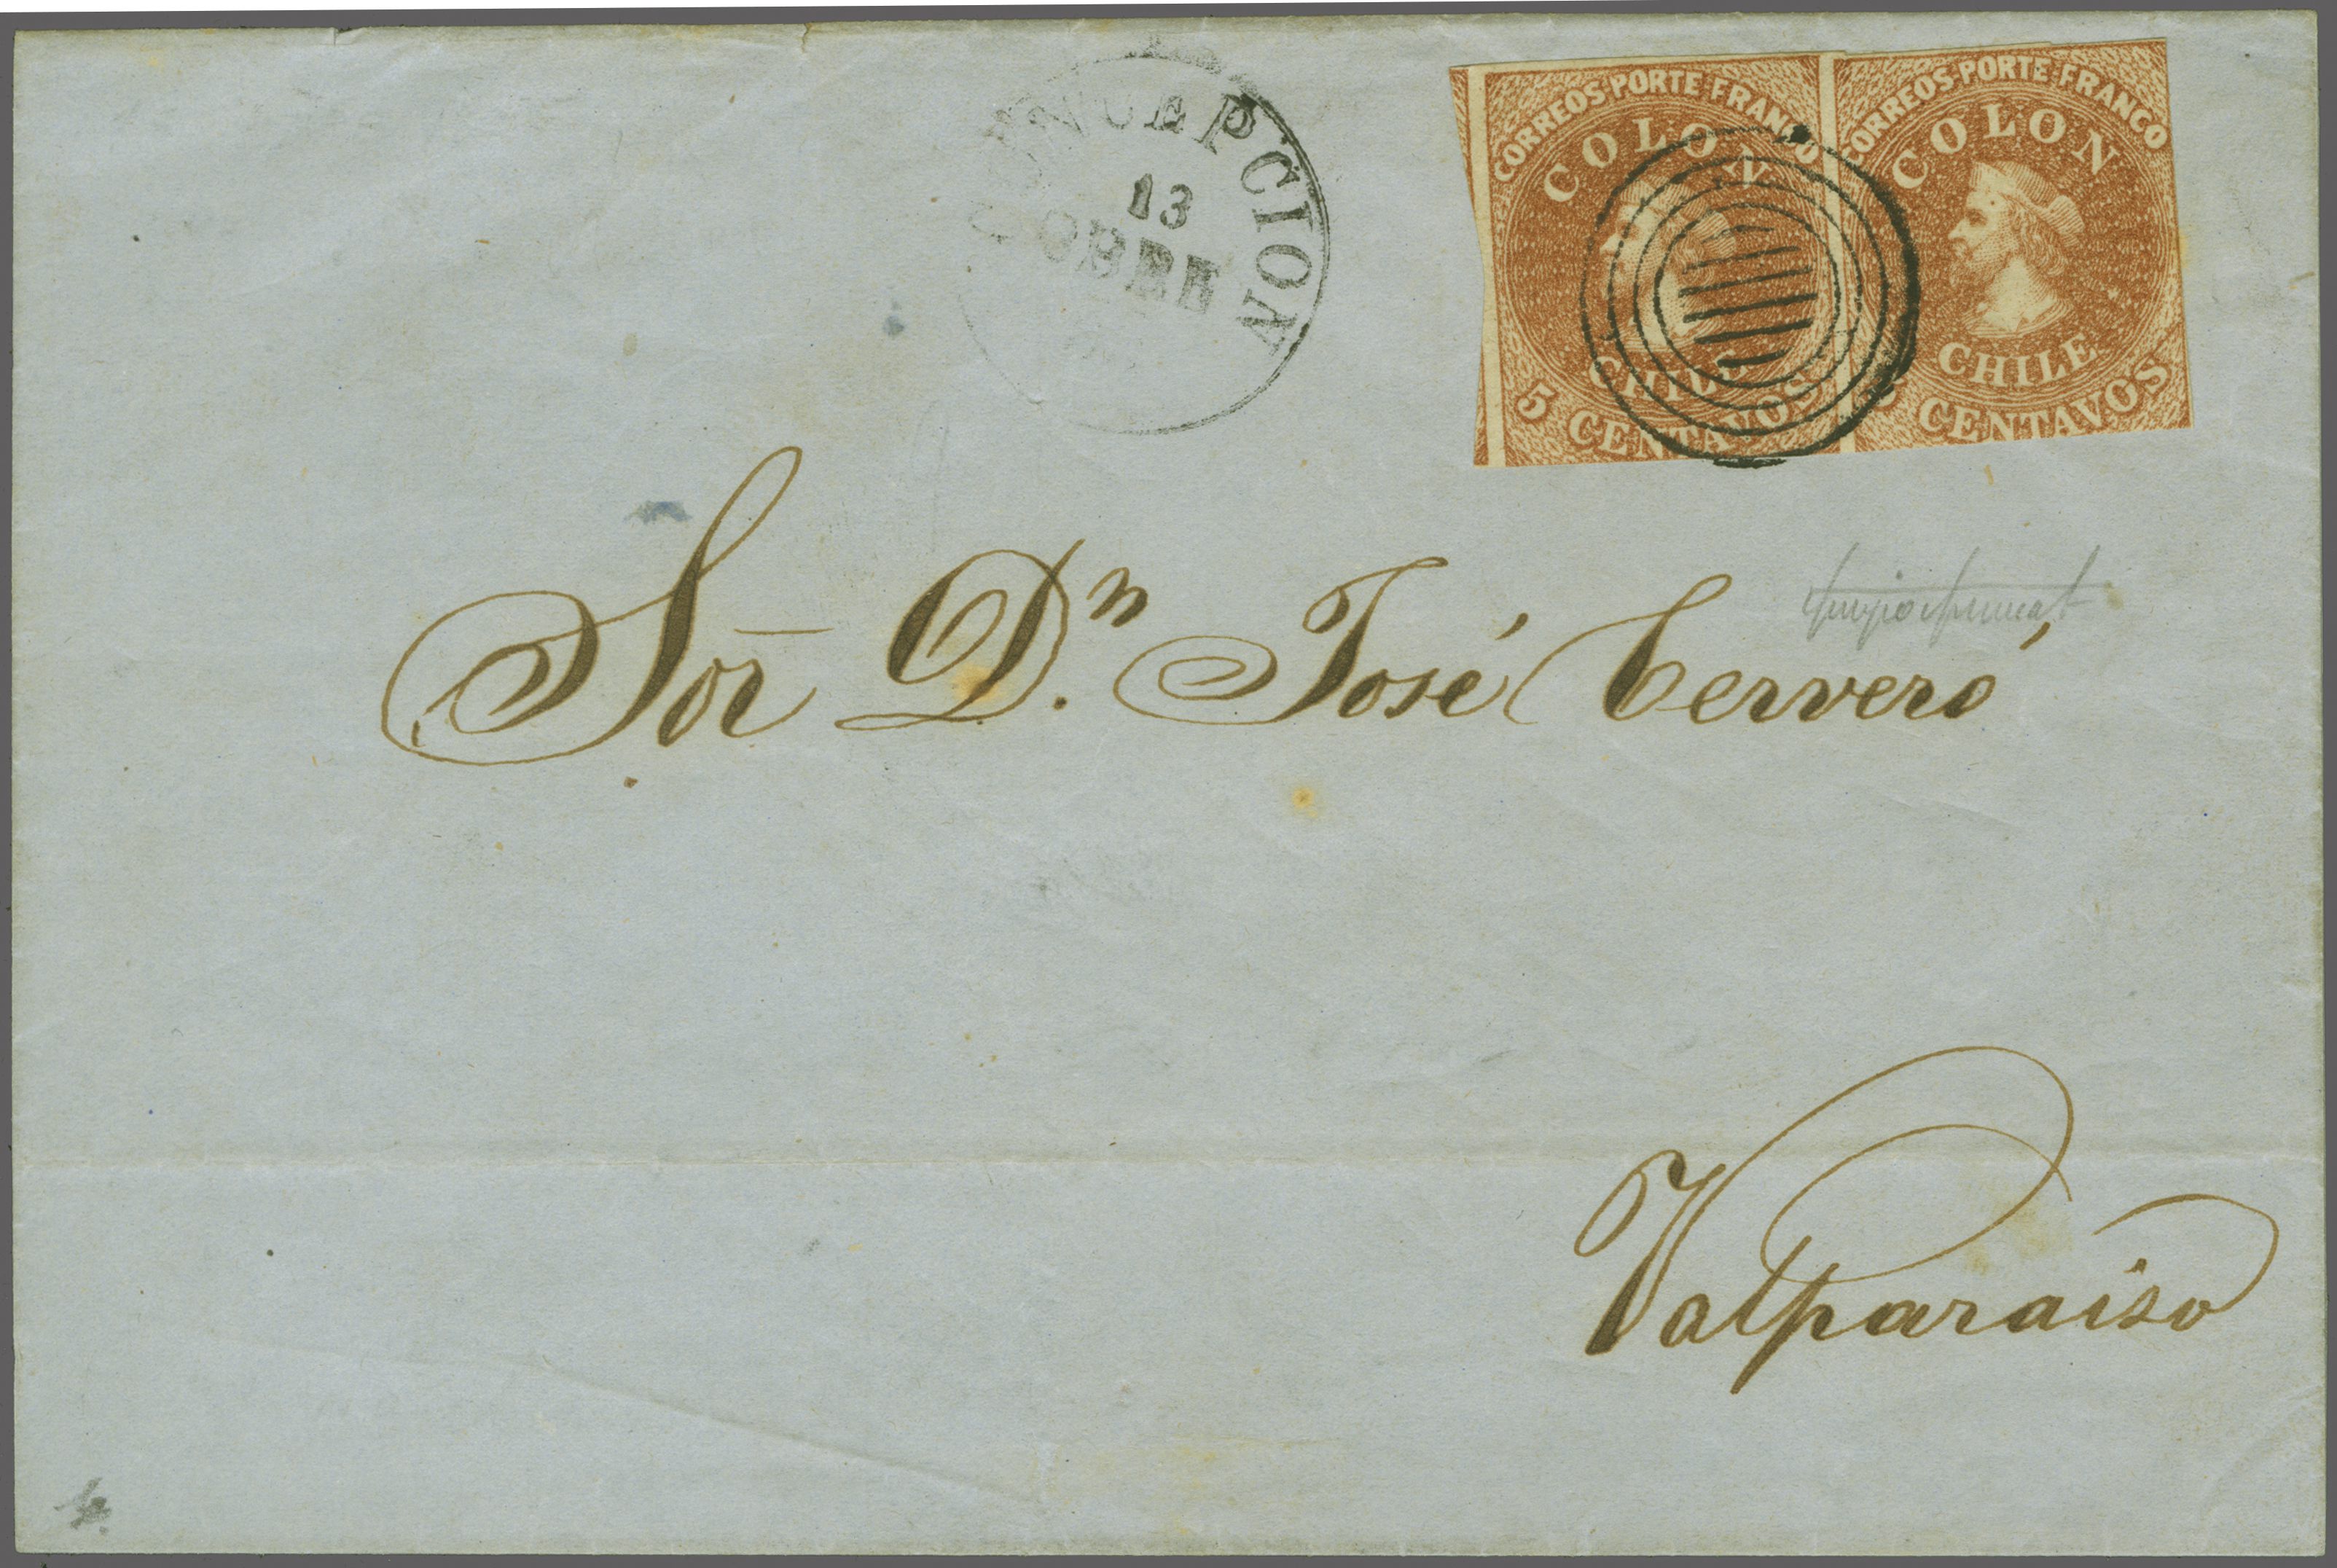 CONCEPCION
13
CORREOS PORTE FRANCO
COLON
CHILE
5 CENTAVOS
CORREOS PORTE FRANCO
COLON
CHILE
5 CENTAVOS
Sor D.n José Cerveró
Valparaiso